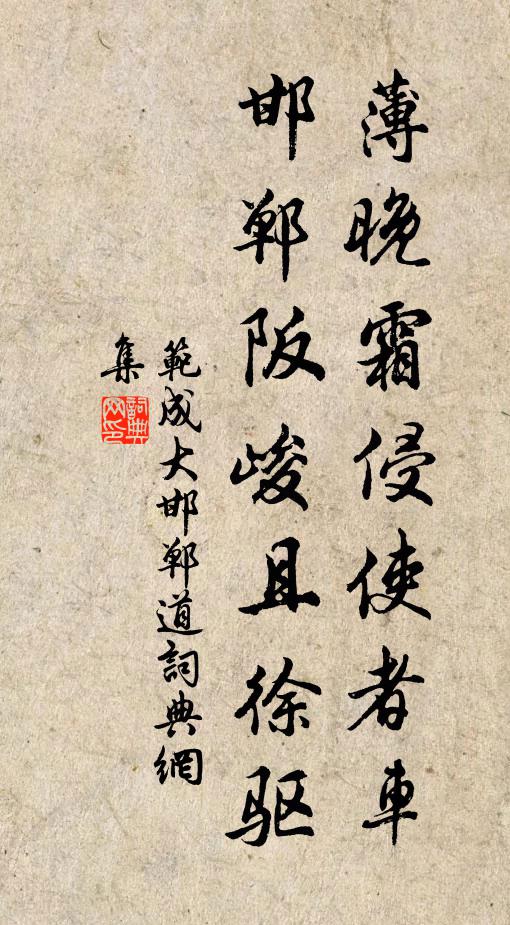 薄晚霜侵使者車
邯郸阪峻且徐驱
範成大邯郸道詞典網
集
詞典
网印